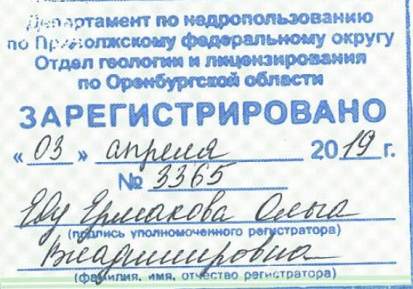 Департамент по недропользованию
по Приволжскому федеральному округу
Отдел геологии и лицензирования
по Оренбургской области
ЗАРЕГИСТРИРОВАНО
« 03 » апреля 2019 г.
№ 3365
Ермакова Ольга
(подпись уполномоченного регистратора)
Владимировна
(фамилия, имя, отчество регистратора)